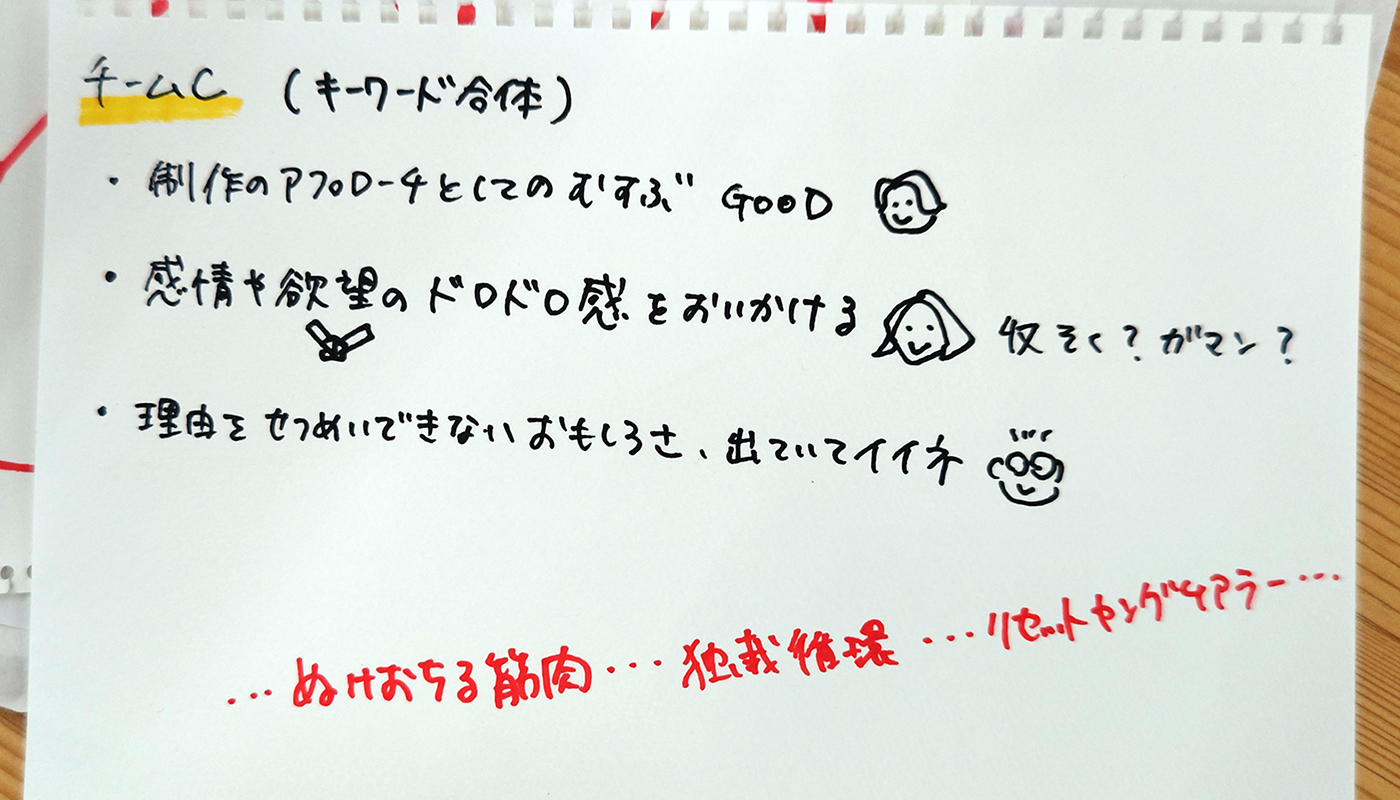 チームC (キーワード合体)
・制作のアプローチとしてのむすぶ GOOD
・感情や欲望のドロドロ感をおいかける 収そく？ガマン？
・理由をせつめいできないおもしろさ、出ていてイイネ
…ぬけおちる筋肉…独裁循環…リセットヤングケアラー…